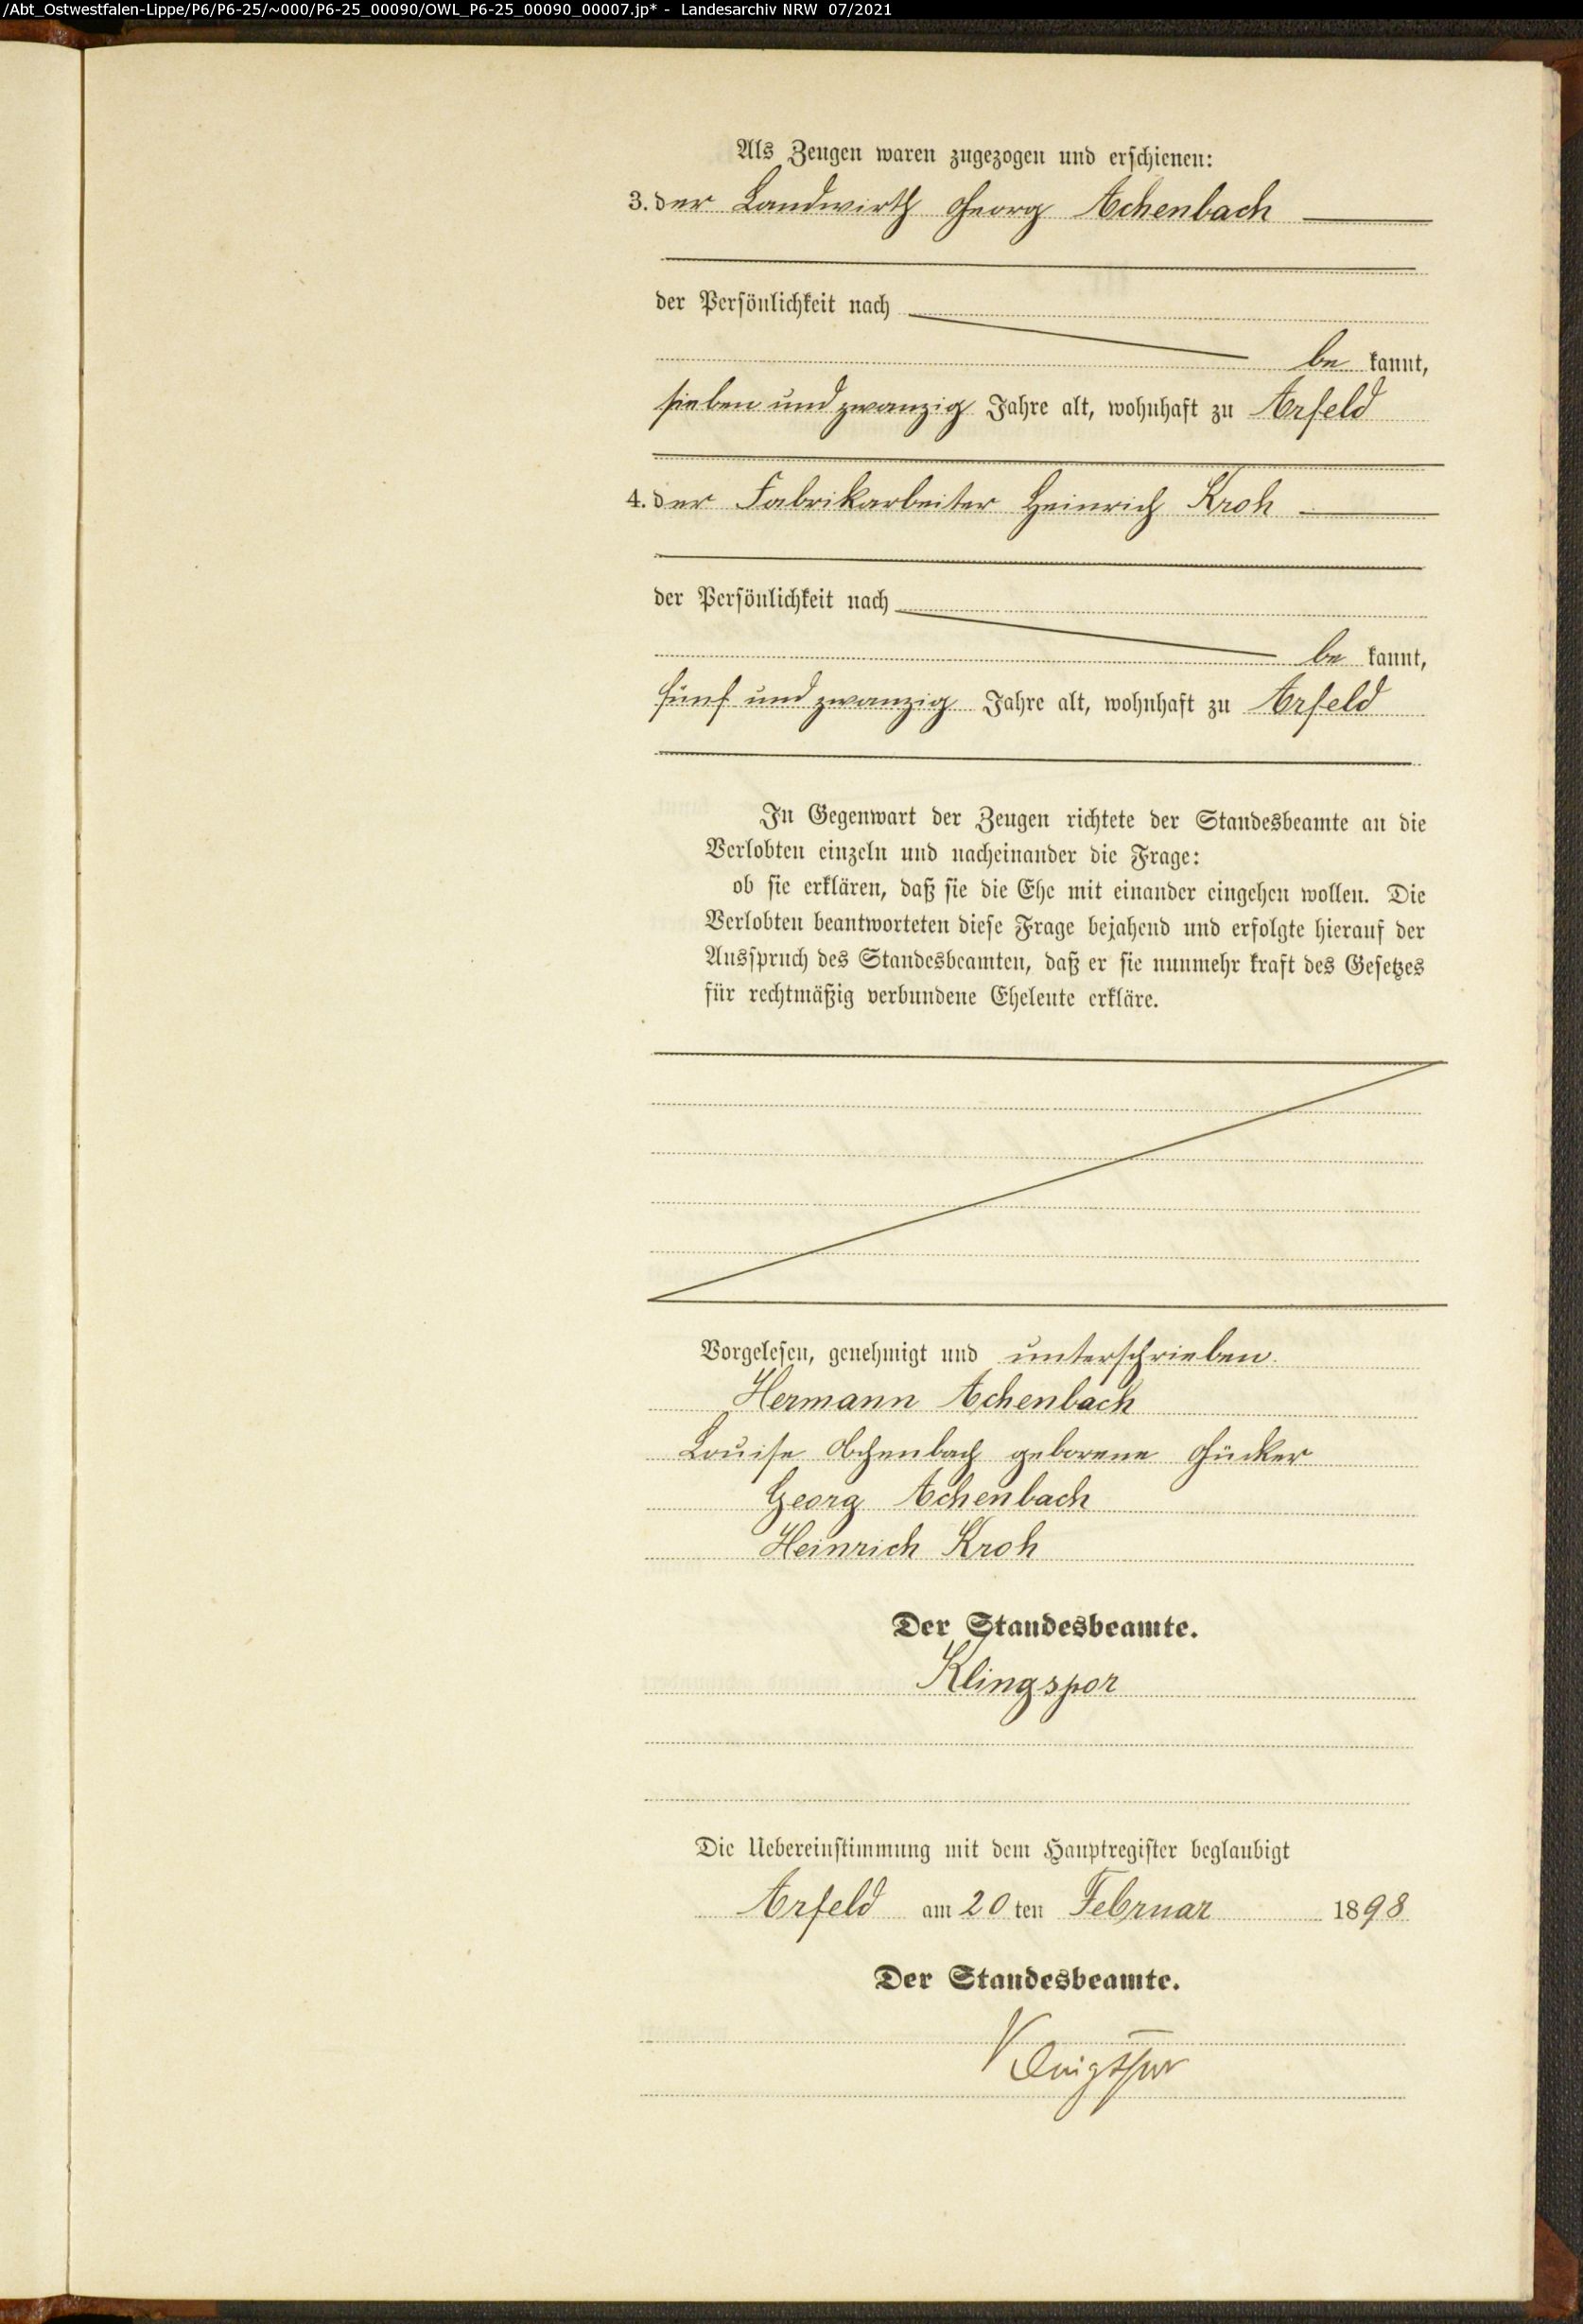 /Abt_Ostwestfalen-Lippe/P6/P6-25/~000/P6-25_00090/OWL_P6-25_00090_00007.jp* - Landesarchiv NRW 07/2021
Als Zeugen waren zugezogen und erschienen:
3. der Landwirth Georg Achenbach
der Persönlichkeit nach
be kannt,
sieben und zwanzig Jahre alt, wohnhaft zu Arfeld
4. der Fabrikarbeiter Heinrich Kroh
der Persönlichkeit nach
be kannt,
fünf und zwanzig Jahre alt, wohnhaft zu Arfeld
In Gegenwart der Zeugen richtete der Standesbeamte an die
Verlobten einzeln und nacheinander die Frage:
ob sie erklären, daß sie die Ehe mit einander eingehen wollen. Die
Verlobten beantworteten diese Frage bejahend und erfolgte hierauf der
Ausspruch des Standesbeamten, daß er sie nunmehr kraft des Gesetzes
für rechtmäßig verbundene Eheleute erkläre.
Vorgelesen, genehmigt und unterschrieben.
Hermann Achenbach
Louise Achenbach geborene Gücker
Georg Achenbach
Heinrich Kroh
Der Standesbeamte.
Klingspor
Die Uebereinstimmung mit dem Hauptregister beglaubigt
Arfeld am 20 ten Februar 1898
Der Standesbeamte.
Klingspor